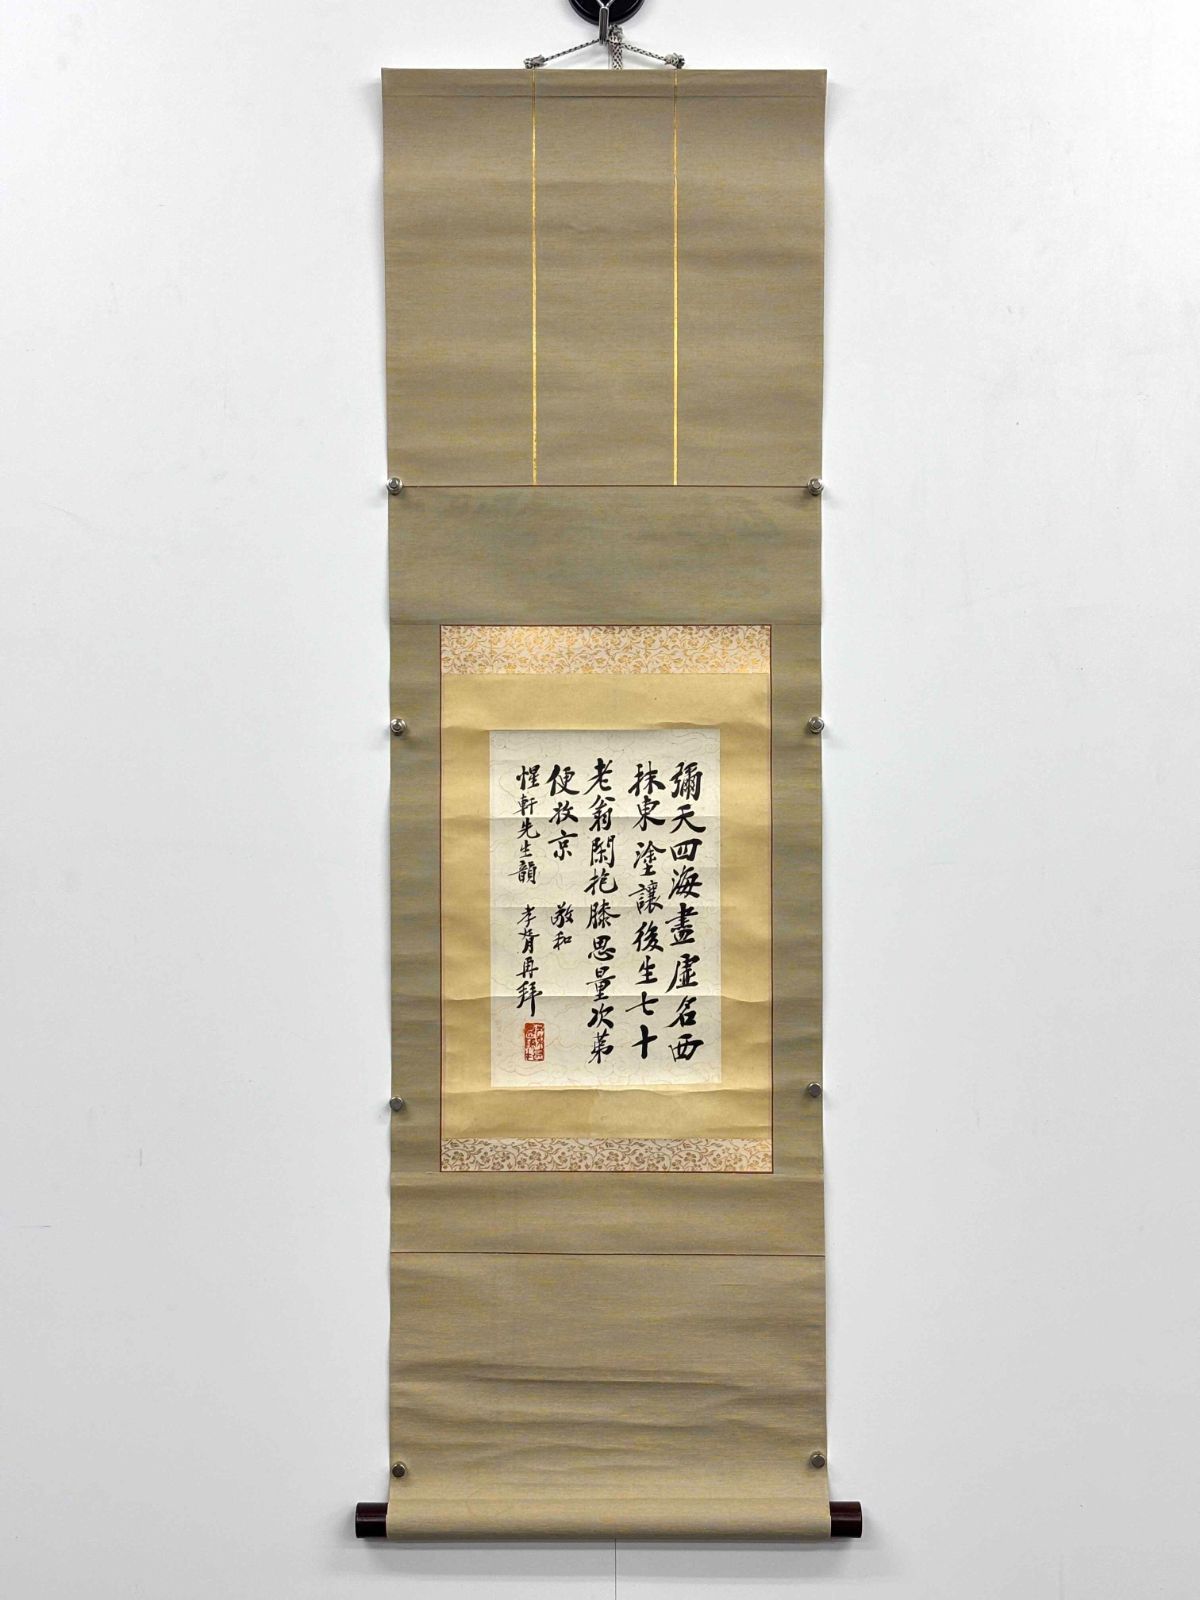 彌天四海盡虛名西
抹東塗讓後生七十
老翁閑抱膝思量次第
便放京 敬和
惺軒先生韻 孝胥再拜